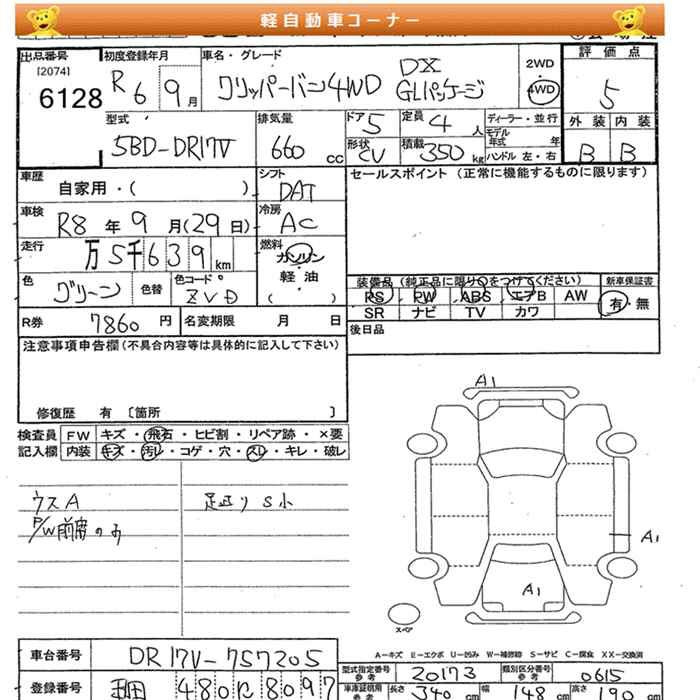 軽自動車コーナー
出品番号
[2074]
6128
初度登録年月
R6 9月
車名・グレード
クリッパーバン4WD DX
GLパッケージ
2WD
4WD
評価点
5
外装 内装
B B
型式
5BD-DR17V
排気量
660 cc
ドア
5
定員
4 人
形状
CV
積載
350 kg
ディーラー・並行
モデル年式 年
ハンドル 左・右
車歴
自家用・( )
シフト
DAT
セールスポイント (正常に機能するものに限ります)
車検
R8年9月(29日)
冷房
AC
走行
万5千639km
燃料
ガソリン
軽油
( )
色
グリーン
色替
色コード
ZVD
装備品 (純正品に限り○をつけてください)
新車保証書
PS PW ABS エアB AW
有・無
SR ナビ TV カワ
R券 7860円
名変期限 月 日
後日品
注意事項申告欄(不具合内容等は具体的に記入して下さい)
修復歴 有 〔箇所 〕
検査員記入欄
FW キズ・飛石・ヒビ割・リペア跡・×要
内装 キズ・汚レ・コゲ・穴・スレ・キレ・破レ
ウスA
P/W前席のみ
足廻りS小
A1
A1
A1
スペア
A-キズ E-エクボ U-凹み W-補修跡 S-サビ C-腐食 XX-交換済
車台番号
DR17V-757205
登録番号
480 に 8097
型式指定番号
参考
20173
類別区分番号
参考
0615
車庫証明用
参考
長さ 340 cm
幅 148 cm
高さ 190 cm